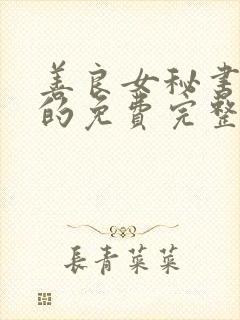 善良女秘书
的免费完整
長青菜菜